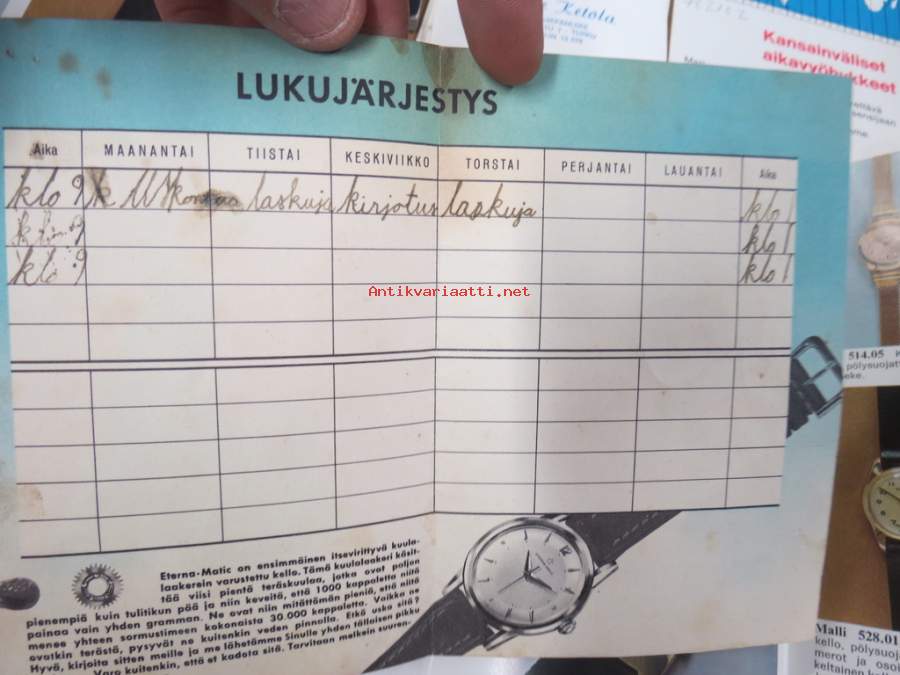 Ketola
Kansainväliset
aikavyöhykkeet
LUKUJÄRJESTYS
Aika MAANANTAI TIISTAI KESKIVIIKKO TORSTAI PERJANTAI LAUANTAI Aika
klo 9 laskuja kirjotus laskuja klo 1
klo 1
klo 9 klo 1
Antikvariaatti.net
514.05 K
pölysuojatt
eke.
Eterna-Matic on ensimmäinen itsevirittyvä kuula-
laakerein varustettu kello. Tämä kuulalaakeri käsit-
tää viisi pientä teräskuulaa, jotka ovat paljon
pienempiä kuin tulitikun pää ja niin keveitä, että 1000 kappaletta niitä
painaa vain yhden gramman. Ne ovat niin mitättömän pieniä, että niitä
menee yhteen sormustimeen kokonaista 30.000 kappaletta. Vaikka ne
ovatkin terästä, pysyvät ne kuitenkin veden pinnalla. Eikö usko sitä?
Hyvä, kirjoita sitten meille ja me lähetämme Sinulle yhden tällaisen pikku
Varo kuitenkin, että et kadota sitä. Tarvitaan melkein suuren-
Malli 528.01
kello, pölysuoja
merot ja osoi
keltainen